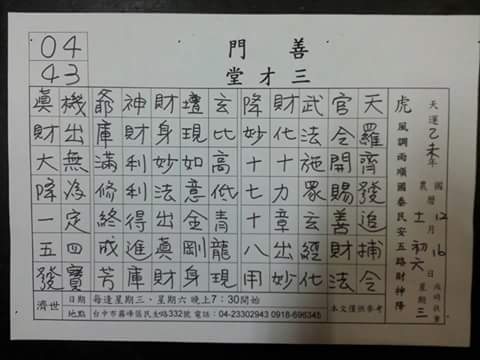 善門
三才堂
04
43
天運乙未年
國曆12月16日星期三
農曆十一初六
虎風調雨順國泰民安五路財神降
天羅齊發追捕令
官令開賜善財法
武法施眾玄經化
財化十力章出妙
降妙十七十八用
玄比高低青龍現
壇現如意金剛身
財身妙法出真財
神財利利得進庫
爺庫滿修終成芳
機出無為定四寶
真財大降一五發
濟世
日期 每逢星期三、星期六 晚上7:30開始
地點 台中市霧峰區民主路332號 電話:04-23302943 0918-696345
本文僅供參考